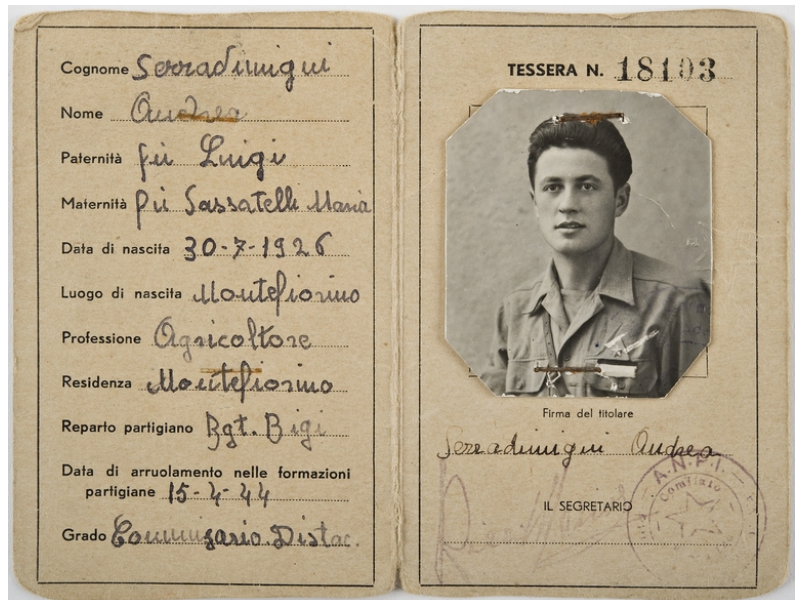 Cognome Serradimigni
Nome Andrea
Paternità fu Luigi
Maternità fu Sassatelli Maria
Data di nascita 30-7-1926
Luogo di nascita Montefiorino
Professione Agricoltore
Residenza Montefiorino
Reparto partigiano Bgt. Bigi
Data di arruolamento nelle formazioni
partigiane 15-4-44
Grado Commissario Distac.
TESSERA N. 18103
Firma del titolare
Serradimigni Andrea
IL SEGRETARIO
A.N.P.I.
Comitato